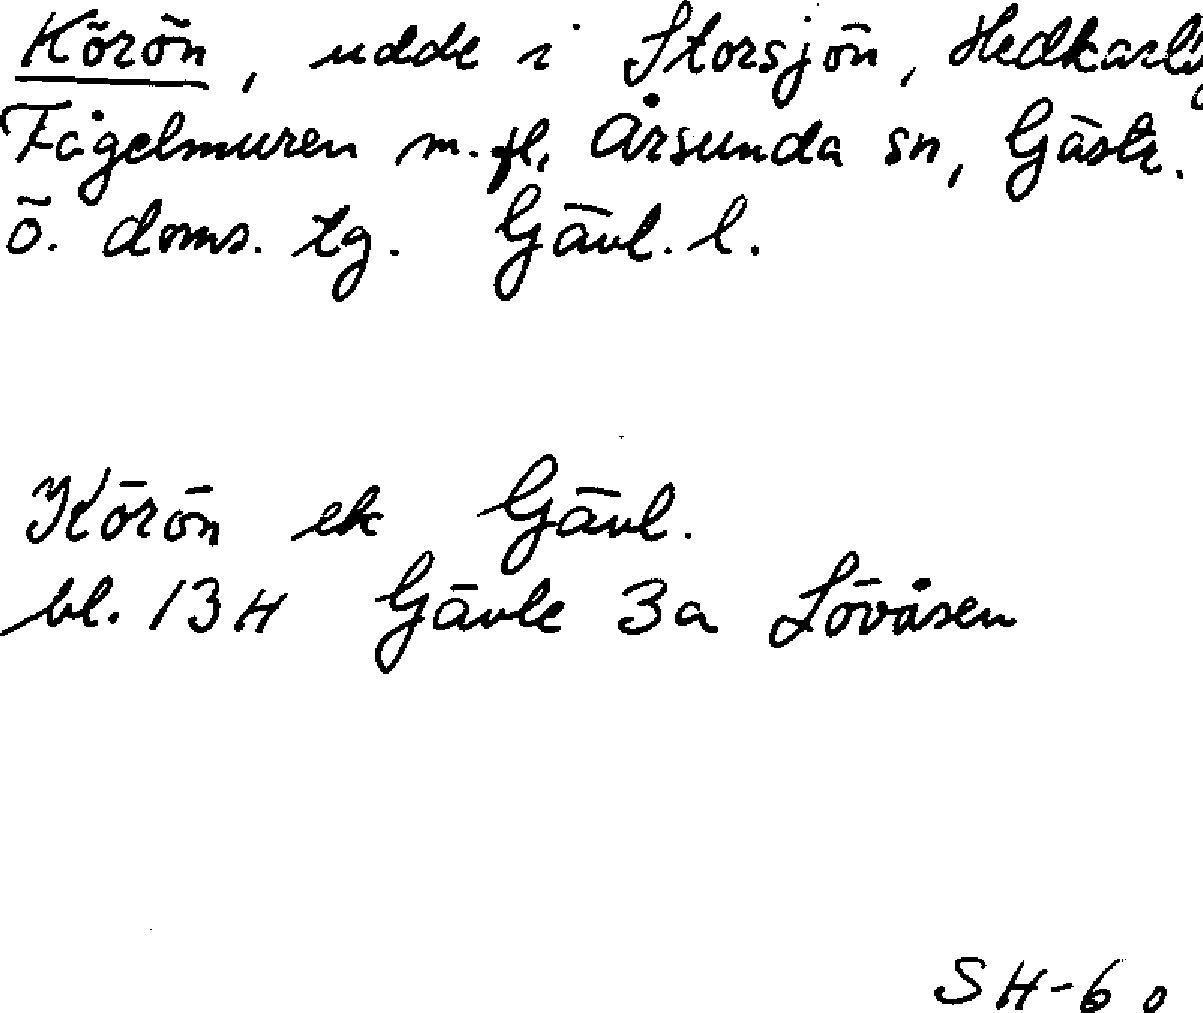 Körön, udde i Storsjön, Hedkarlby
Fågelmuren m.fl, Årsunda sn, Gästr.
ö. doms. tg. Gävl. l.
Körön ek Gävl.
bl. 13H Gävle 3a Lövåsen
SH-60